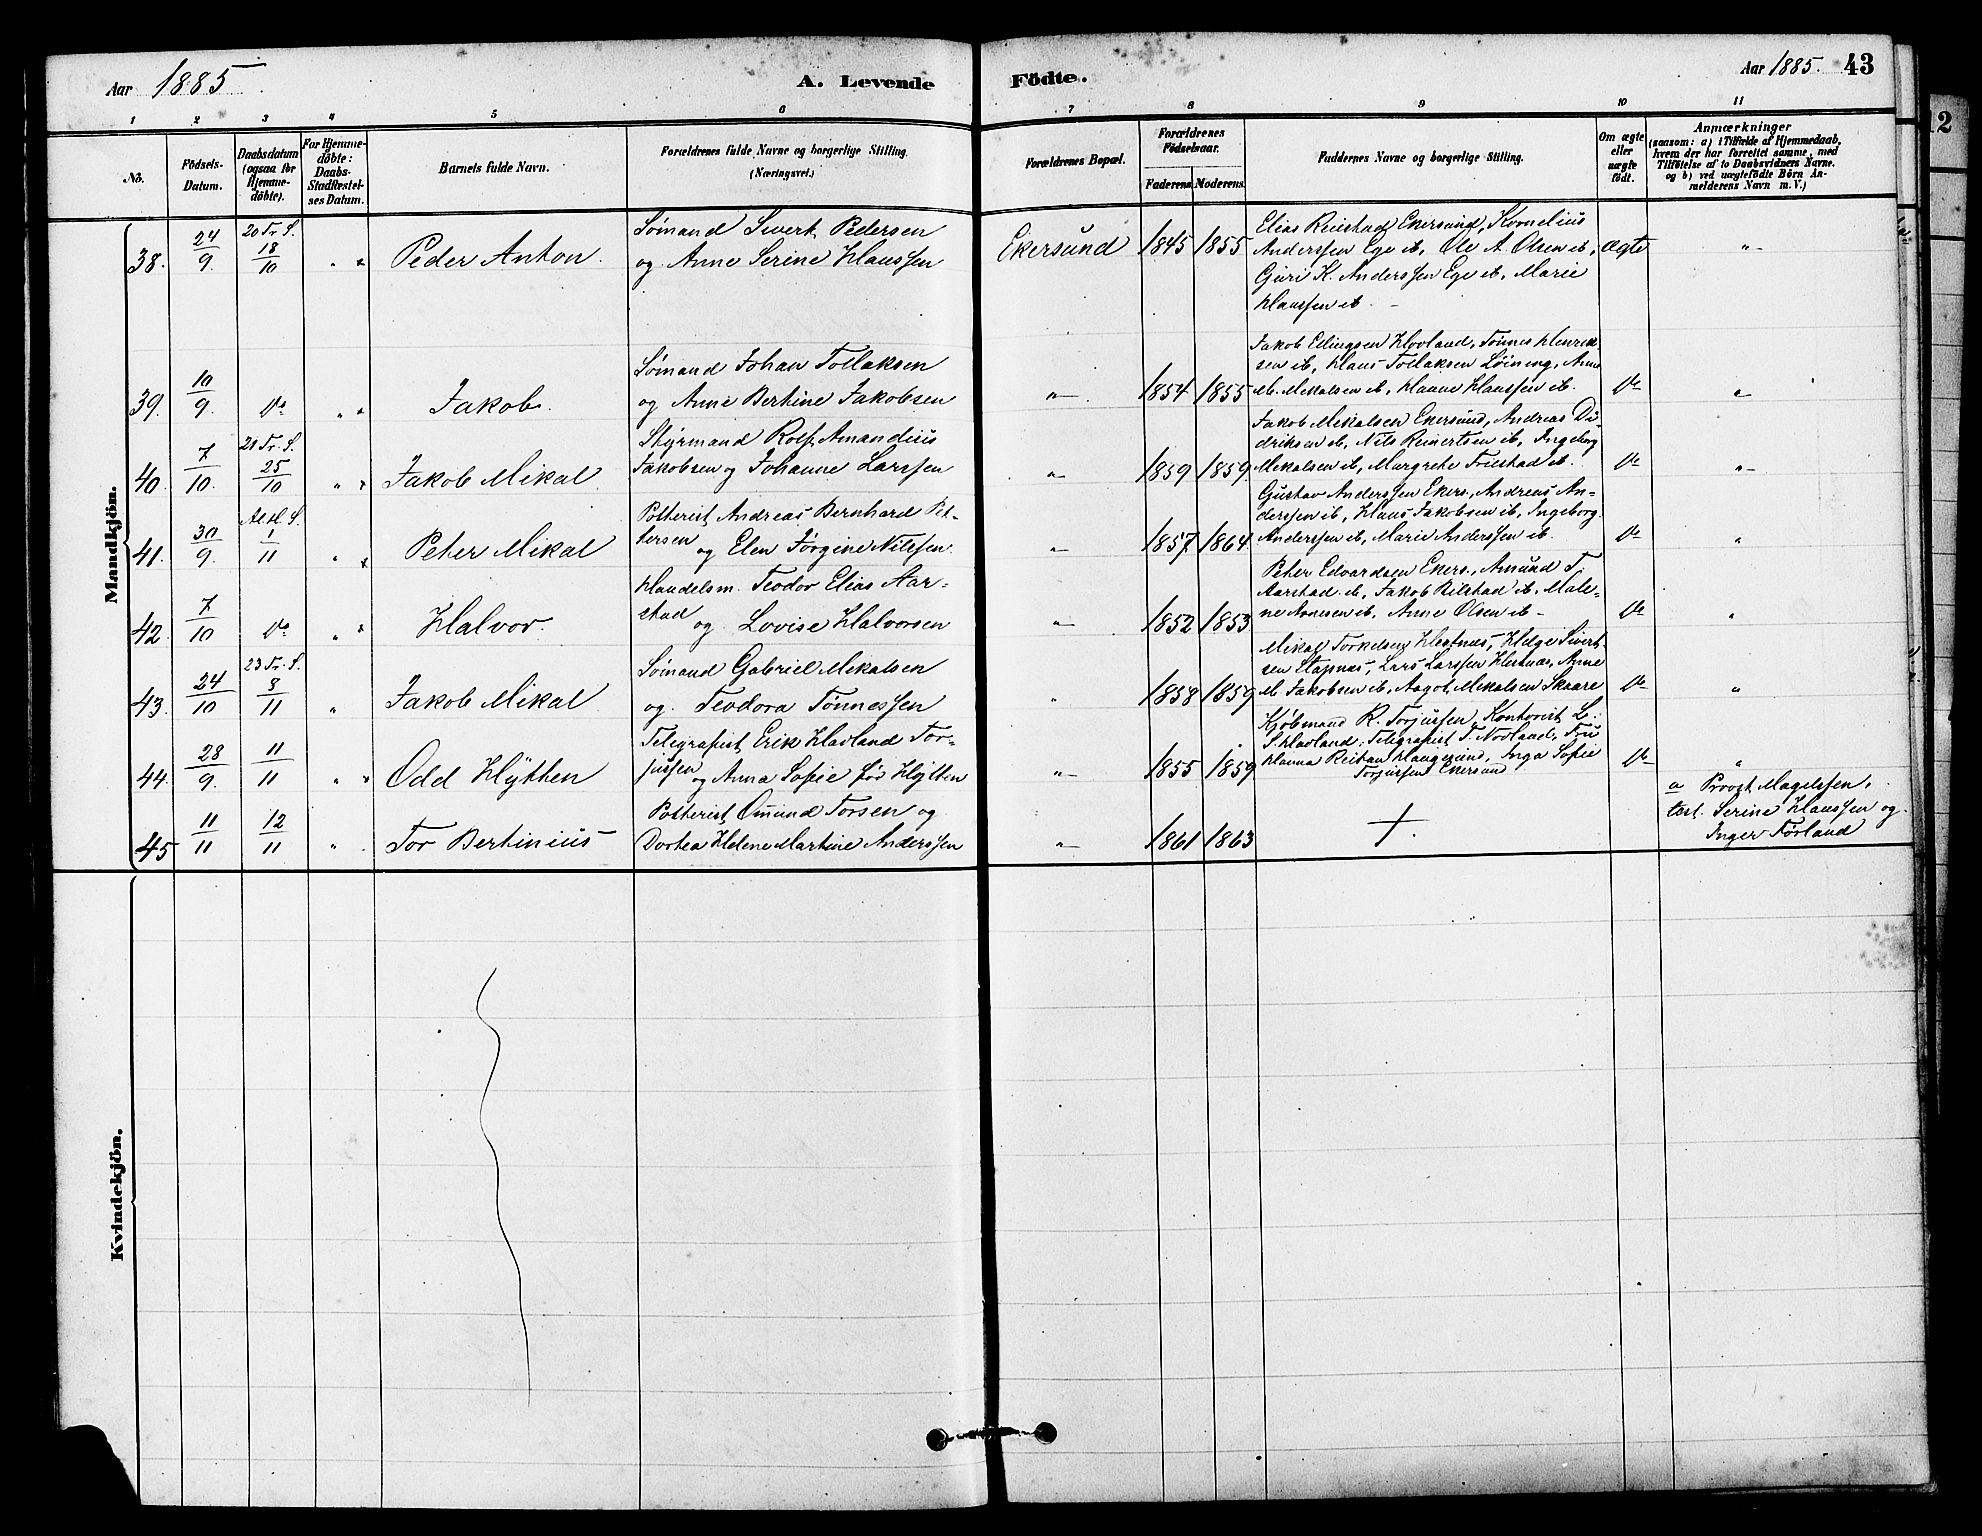 Aar 1885
A. Levende
Födte.
Aar 1885. 43
1 2 3 4 5 6 7 8 9 10 11
No.
Födsels-
Datum.
Daabsdatum
(ogsaa for
Hjemme-
döbte).
For Hjemme-
döbte:
Daabs-
Stadfæstel-
ses Datum.
Barnets fulde Navn.
Forældrenes fulde Navne og borgerlige Stilling.
(Næringsvei.)
Forældrenes Bopæl.
Forældrenes
Födselsaar.
Faderens. Moderens.
Faddernes Navne og borgerlige Stilling.
Om ægte
eller
uægte
födt.
Anmærkninger
(saasom: a) i Tilfælde af Hjemmedaab,
hvem der har forrettet samme, med
Tilföielse af to Daabsvidners Navne.
og b) ved uægtefödte Börn An-
melderens Navn m. V.)
Mandkjön.
38. 24/9. 20 Tr. S. 18/10 " " Peder Anton.
Sømand Sivert Pedersen
og Anne Serine Klaussen
Ekersund 1845 1855
Elias Reiestad Ekersund, Kornelius
Anderssen Ege ib, Ole A. Olsen ib,
Guri K. Anderssen Ege ib, Marie
Klaussen ib. -
Ægte "
39. 10/9. do " " Jakob.
Sømand Johan Tollaksen
og Anne Bertine Jakobsen
" 1854 1855
Jakob Ellingsen Hovland, Tønnes Henrik-
sen ib, Klaus Tollaksen Løining, Anne
M. Mikalsen ib, Hanne Klaussen ib.
do "
40. 7/10. 21 Tr. S. 25/10 " " Jakob Mikal
Styrmand Rolf Amandius
Jakobsen og Johanne Larssen
" 1859 1859
Jakob Mikalsen Ekersund, Andreas Di-
driksen ib, Nils Reinertsen ib, Ingeborg
Mikalsen ib, Margrete Friestad ib.
do "
41. 30/9. All. H. S. 1/11 " " Peter Mikal
Potterist Andreas Bernhard Pet-
tersen og Elen Jørgine Nilssen.
" 1857 1864
Gustav Anderssen Ekers., Andreas An-
derssen ib, Klaus Jakobsen ib, Ingeborg
Anderssen ib, Marie Anderssen ib.
do "
42. 7/10 do " " Halvor.
Handelsm. Teodor Elias Aar-
stad og Lovise Halvorsen
" 1852 1853
Peter Edvardsen Ekers., Amund T.
Aarstad ib, Jakob Bilstad ib, Male-
ne ib, Anne Olsen ib -
do "
43. 24/10 23 Tr. S. 8/11 " Jakob Mikal
Sømand Gabriel Mikalsen
og Teodora Tønnessen
" 1858 1859
Mikal Torkelsen Hestnæs, Helge Sivert-
sen Stapnæs, Lars Larssen Hestnæs, Anne
M Jakobsen ib, Aagot Mikalsen Skaare
do "
44. 28/9. 11/11 " " Odd Hytten
Telegrafist Erik Havland Tor-
jussen og Anna Sofie fød Hytten
" 1855 1859
Kjøbmand R. Torjussen, Kontorist L.
S. Havland, Telegrafist T. Novland, Fru
Hanna Reitan Haugesund, Inga Sofie
Torjussen Ekersund
do "
45 11/11 12/11 " Tor Bertinius
Potterist Omund Torsen og
Dortea Helene Martine Anderssen
" 1861 1863
+.
a Provst Magelssen,
test. Serine Klaussen og
Inger Førland
Kvindekjön.
12